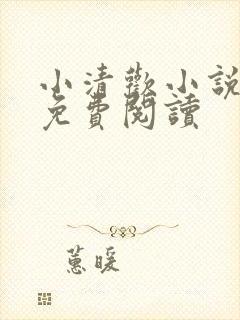 小清歡小說
免費閱讀
蕙暖